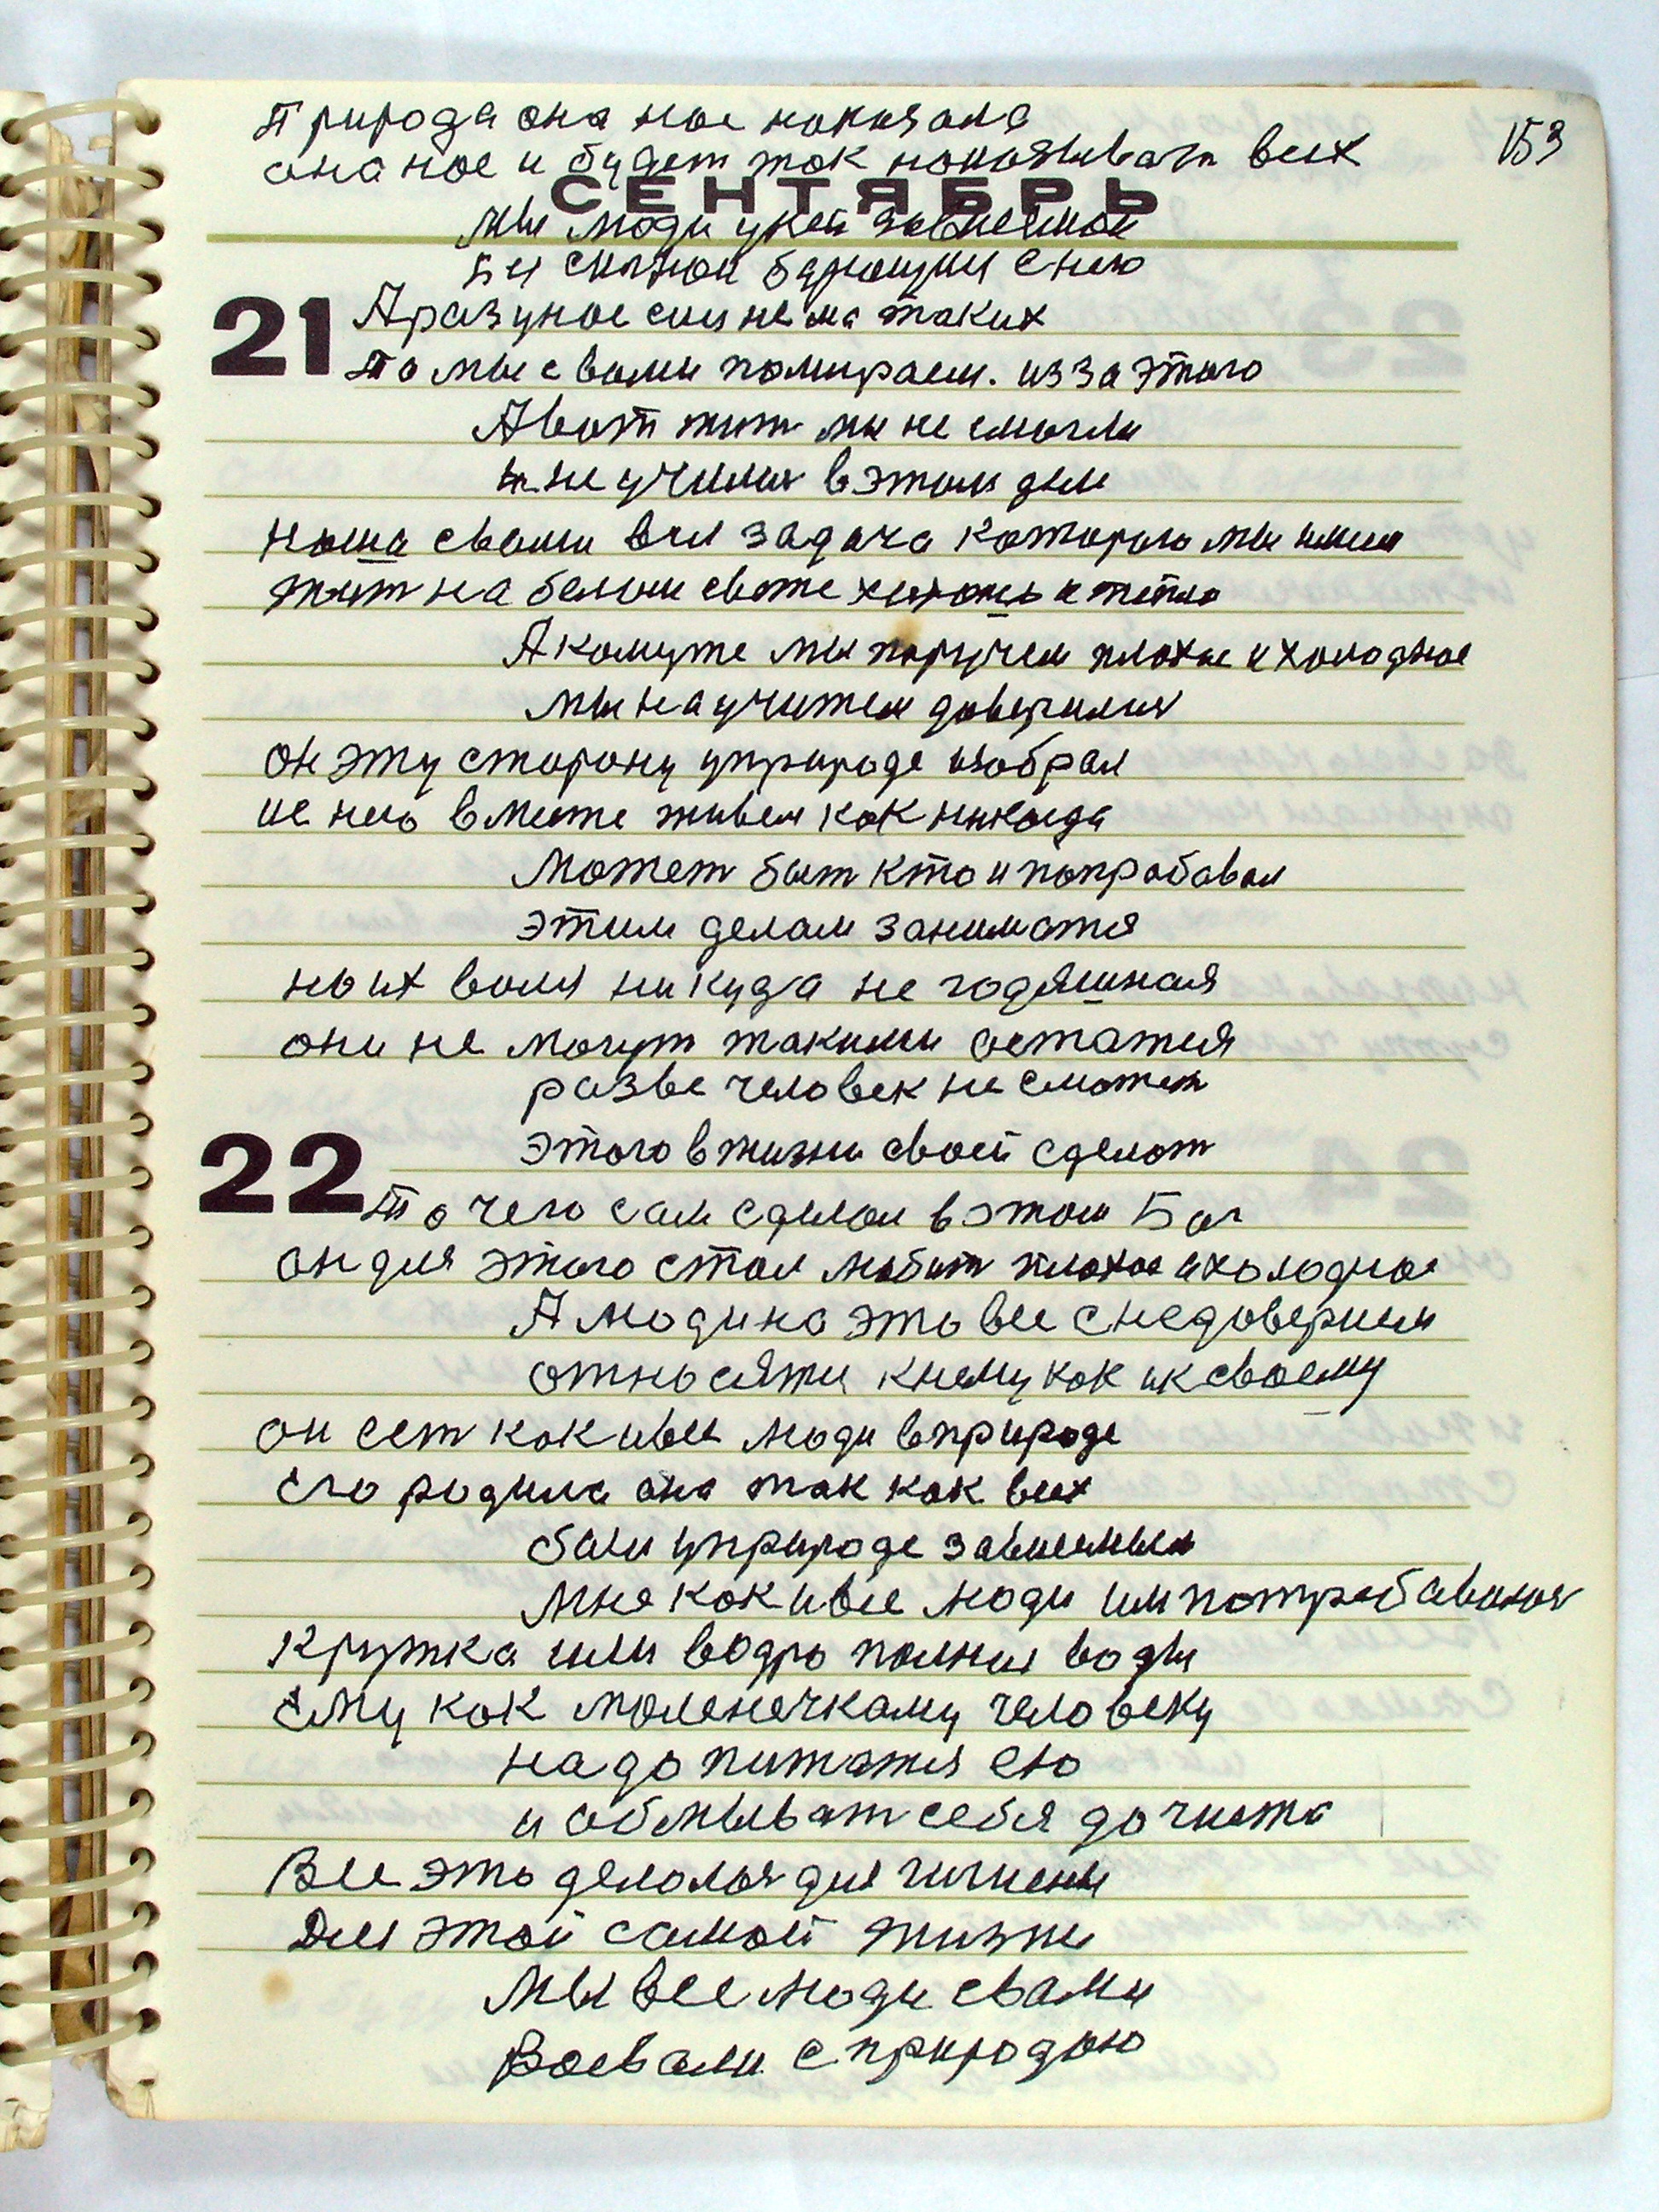 Природа она нас наказала
153
она нас и будет так наказывать всех
СЕНТЯБРЬ
мы люди у ней зависемои
с нею
21
А разумное если нема таких
то мы с вами помираем. из за этого
А вот тит мы не смогли
и не училис в этом деле
Наша с вами вся задача которою мы имеем
жит на белом свете хорошо и тепло
А кому же мы поручем плохое и холодное
мы на учителя доверился
он эту сторону у природе изобрал
и с нею вместе живем как никогда
Может быт кто и попробовал
этим делам заниматся
но их воля никуда не годяшиная
они не могут такими остатся
разве человек не сможет
22
этого в жизни своей сделат
То чего сам сделал в этом Бог
он для этого стал любит плохое и холодное
А люди на это все с недоверием
относятся к нему как и к своему
он ест как и все люди в природе
его родила она так как всех
были у природе зависемыи
Мне как и все люди им потребавалася
кружка или водро полная воды
ему как маленечкаму человеку
надо питатся ею
и обмыват себя до чиста
Все это делолося для гигиены
Для этой самой жизни
Мы все люди с вами
Воевали с природою